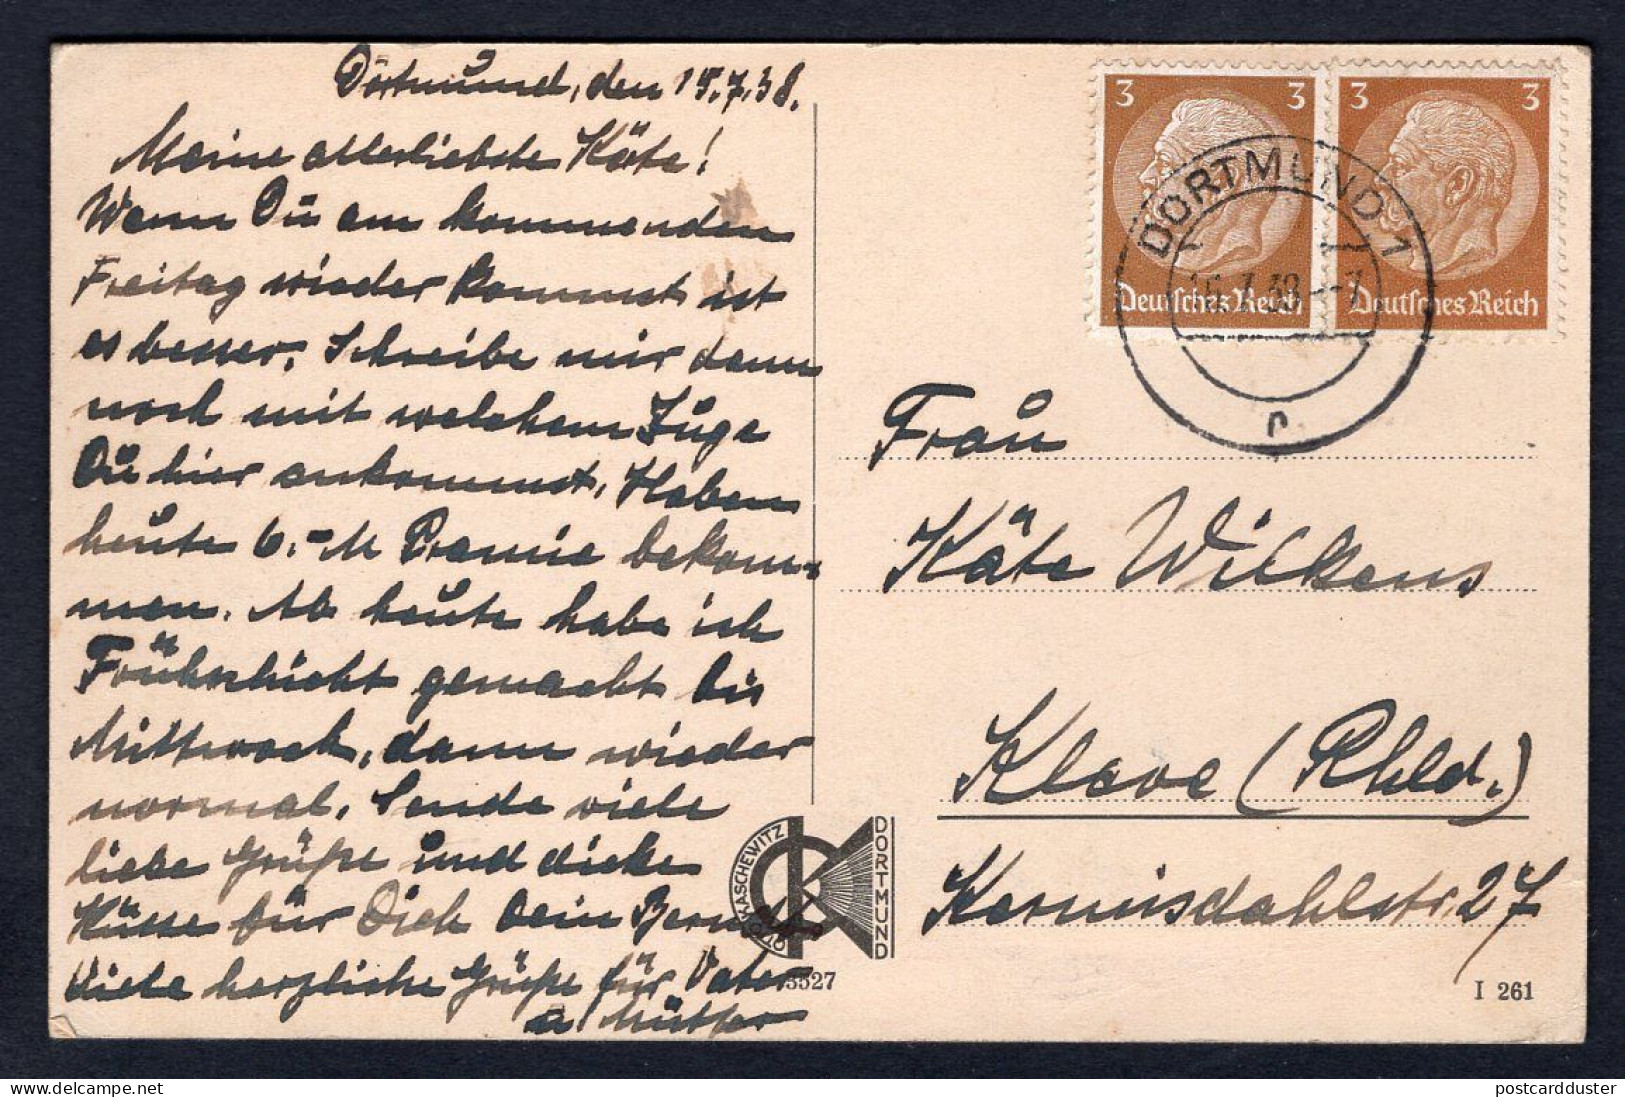 Dortmund, den 15.7.38.
Meine allerliebste Käte!
Wenn Du am kommenden
Freitag wieder kommst ist
es besser. Schreibe mir dann
noch mit welchem Zuge
Du hier ankommst. Haben
heute 6.-M Premie bekom-
men. Ab heute habe ich
Frühschicht gemacht bis
Mittwoch, dann wieder
normal. Sende viele
liebe Grüße und dicke
Küsse für Dich Dein Bernd
Viele herzliche Grüße für Vater
u Mutter
3 3
Deutsches Reich
3 3
Deutsches Reich
DORTMUND 1
7.38.-7
Frau
Käte Wilkens
Kleve (Rhld.)
Kermisdahlstr. 27
OTTO KASCHEWITZ
DORTMUND
3527
I 261
© www.delcampe.net
postcardduster